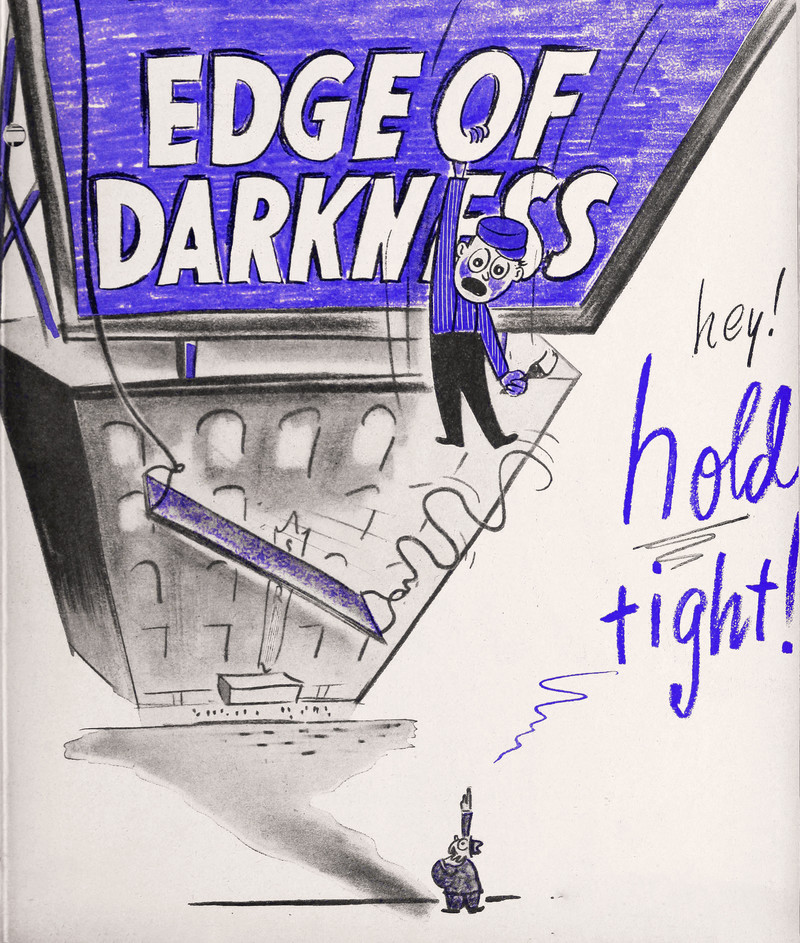 EDGE OF
DARKNESS
hey!
hold
tight!